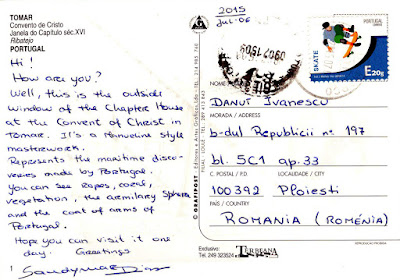 TOMAR
Convento de Cristo
Janela do Capítulo séc.XVI
Ribatejo
PORTUGAL
Hi!
How are you?
Well, this is the outside
window of the Chapter House
at the Convent of Christ in
Tomar. It's a Manueline style
masterwork.
Represents the maritime disco-
veries made by Portugal.
You can see ropes, corals,
vegetation, the armilary sphere
and the coat of arms of
Portugal.
Hope you can visit it one
day. Greetings
2015
Jul-06
SKATE
PORTUGAL
E20g
NOME / NAME
Danut Ivanescu
MORADA / ADDRESS
b-dul Republicii nº 197
bl. 5C1 ap.33
C. POSTAL / P.D. LOCALIDADE / CITY
100392 Ploiesti
PAÍS / COUNTRY
ROMANIA (ROMÉNIA)
© GRAFIPOST
Exclusivo:
Tel. 249 323524